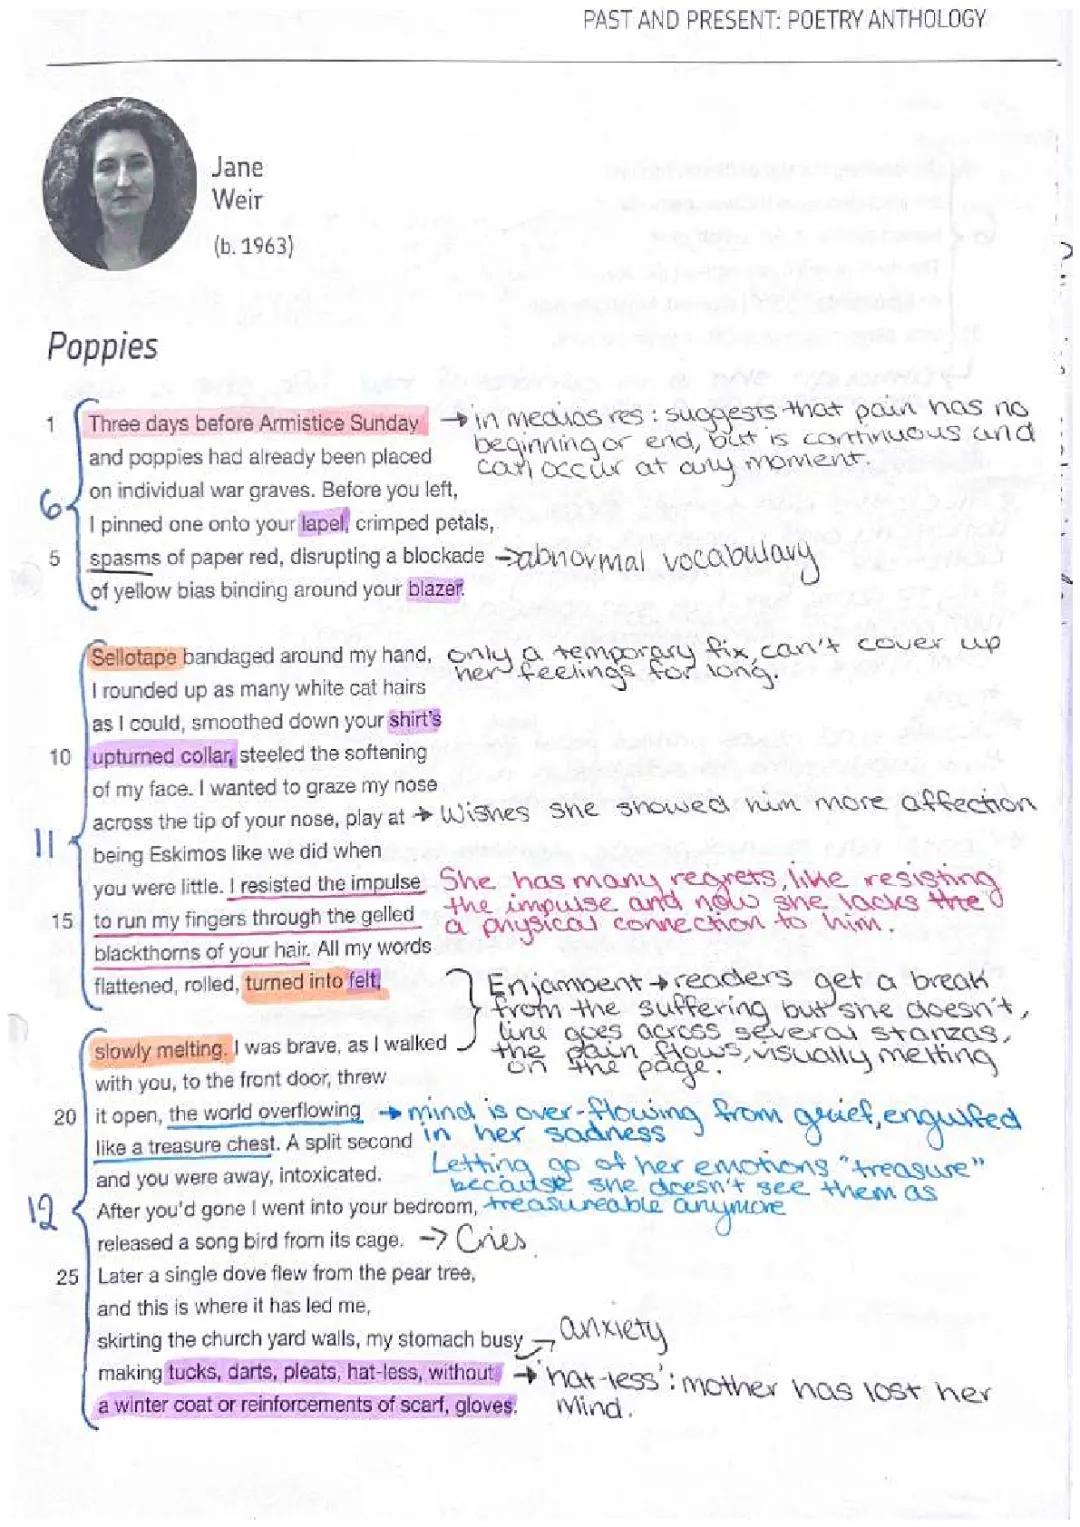 PAST AND PRESENT: POETRY ANTHOLOGY
Jane
Weir
(b. 1963)
Poppies
1 Three days before Armistice Sunday → in medias res: suggests that pain has no
beginning or end, but is continuous and
and poppies had already been placed
can occur at any moment.
on individual war graves. Before you left,
6
I pinned one onto your lapel, crimped petals,
5 spasms of paper red, disrupting a blockade → abnormal vocabulary
of yellow bias binding around your blazer.
Sellotape bandaged around my hand, only a temporary fix, can't cover up
her feelings for long.
I rounded up as many white cat hairs
as I could, smoothed down your shirt's
10 upturned collar, steeled the softening
of my face. I wanted to graze my nose
across the tip of your nose, play at → Wishes she showed him more affection
11
being Eskimos like we did when
you were little. I resisted the impulse She has many regrets, like resisting
the impulse and now she lacks the
15 to run my fingers through the gelled a physical connection to him.
blackthorns of your hair. All my words
flattened, rolled, turned into felt,
Enjambent → readers get a break
from the suffering but she doesn't,
line goes across several stanzas,
slowly melting. I was brave, as I walked the pain flows, visually melting
on the page.
with you, to the front door, threw
20 it open, the world overflowing → mind is over-flowing from grief, engulfed
in her sadness
like a treasure chest. A split second
Letting go of her emotions "treasure"
and you were away, intoxicated. because she doesn't see them as
12
After you'd gone I went into your bedroom, treasureable anymore
released a song bird from its cage. → Cries
25 Later a single dove flew from the pear tree,
and this is where it has led me,
skirting the church yard walls, my stomach busy → anxiety
making tucks, darts, pleats, hat-less, without → 'hat-less': mother has lost her
a winter coat or reinforcements of scarf, gloves. mind.